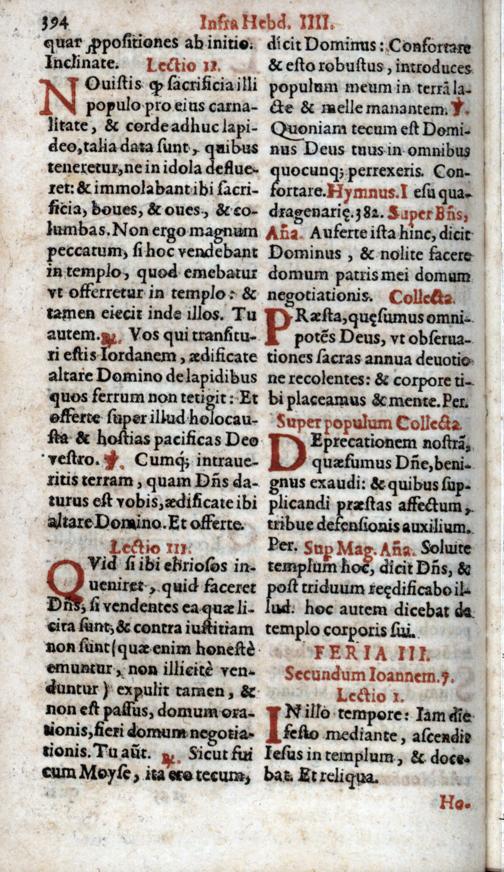 394
Infra Hebd. IIII.
quar ꝓpositiones ab initio.
Inclinate. Lectio II.
NOuistis ꝙ sacrificia illi
populo pro eius carna-
litate, & corde adhuc lapi-
deo, talia data sunt, quibus
teneretur, ne in idola deflue-
ret: & immolabant ibi sacri-
ficia, boues, & oues, & co-
lumbas. Non ergo magnum
peccatum, si hoc vendebant
in templo, quod emebatur
vt offerretur in templo: &
tamen eiecit inde illos. Tu
autem. ℟. Vos qui transitu-
ri estis Iordanem, ædificate
altare Domino de lapidibus
quos ferrum non tetigit: Et
offerte super illud holocau-
sta & hostias pacificas Deo
vestro. ℣. Cumq; intraue-
ritis terram, quam Dñs da-
turus est vobis, ædificate ibi
altare Domino. Et offerte.
Lectio III.
QVid si ibi ebriosos in-
ueniret, quid faceret
Dñs; si vendentes ea quæ li-
cita sunt, & contra iustitiam
non sunt (quæ enim honestè
emuntur, non illicitè ven-
duntur) expulit tamen, &
non est passus, domum ora-
tionis, fieri domum negotia-
tionis. Tu aũt. ℟. Sicut fui
cum Moyse, ita ero tecum,
dicit Dominus: Confortare
& esto robustus, introduces
populum meum in terrã la-
cte & melle manantem. ℣.
Quoniam tecum est Domi-
nus Deus tuus in omnibus
quocunq; perrexeris. Con-
fortare. Hymnus. Iesu qua-
dragenarię. 382. Super Bñs,
Aña. Auferte ista hinc, dicit
Dominus, & nolite facere
domum patris mei domum
negotiationis. Collecta.
PRæsta, quęsumus omni-
potẽs Deus, vt obserua-
tiones sacras annua deuotio
ne recolentes: & corpore ti-
bi placeamus & mente. Per.
Super populum Collecta
DEprecationem nostrã,
quæsumus Dñe, beni-
gnus exaudi: & quibus sup-
plicandi præstas affectum,
tribue defensionis auxilium.
Per. Sup Mag. Aña. Soluite
templum hoc, dicit Dñs, &
post triduum reędificabo il-
lud: hoc autem dicebat de
templo corporis sui.
FERIA III.
Secundum Ioannem. 7.
Lectio 1.
IN illo tempore: Iam die
festo mediante, ascendit
Iesus in templum, & doce-
bat. Et reliqua.
Ho.